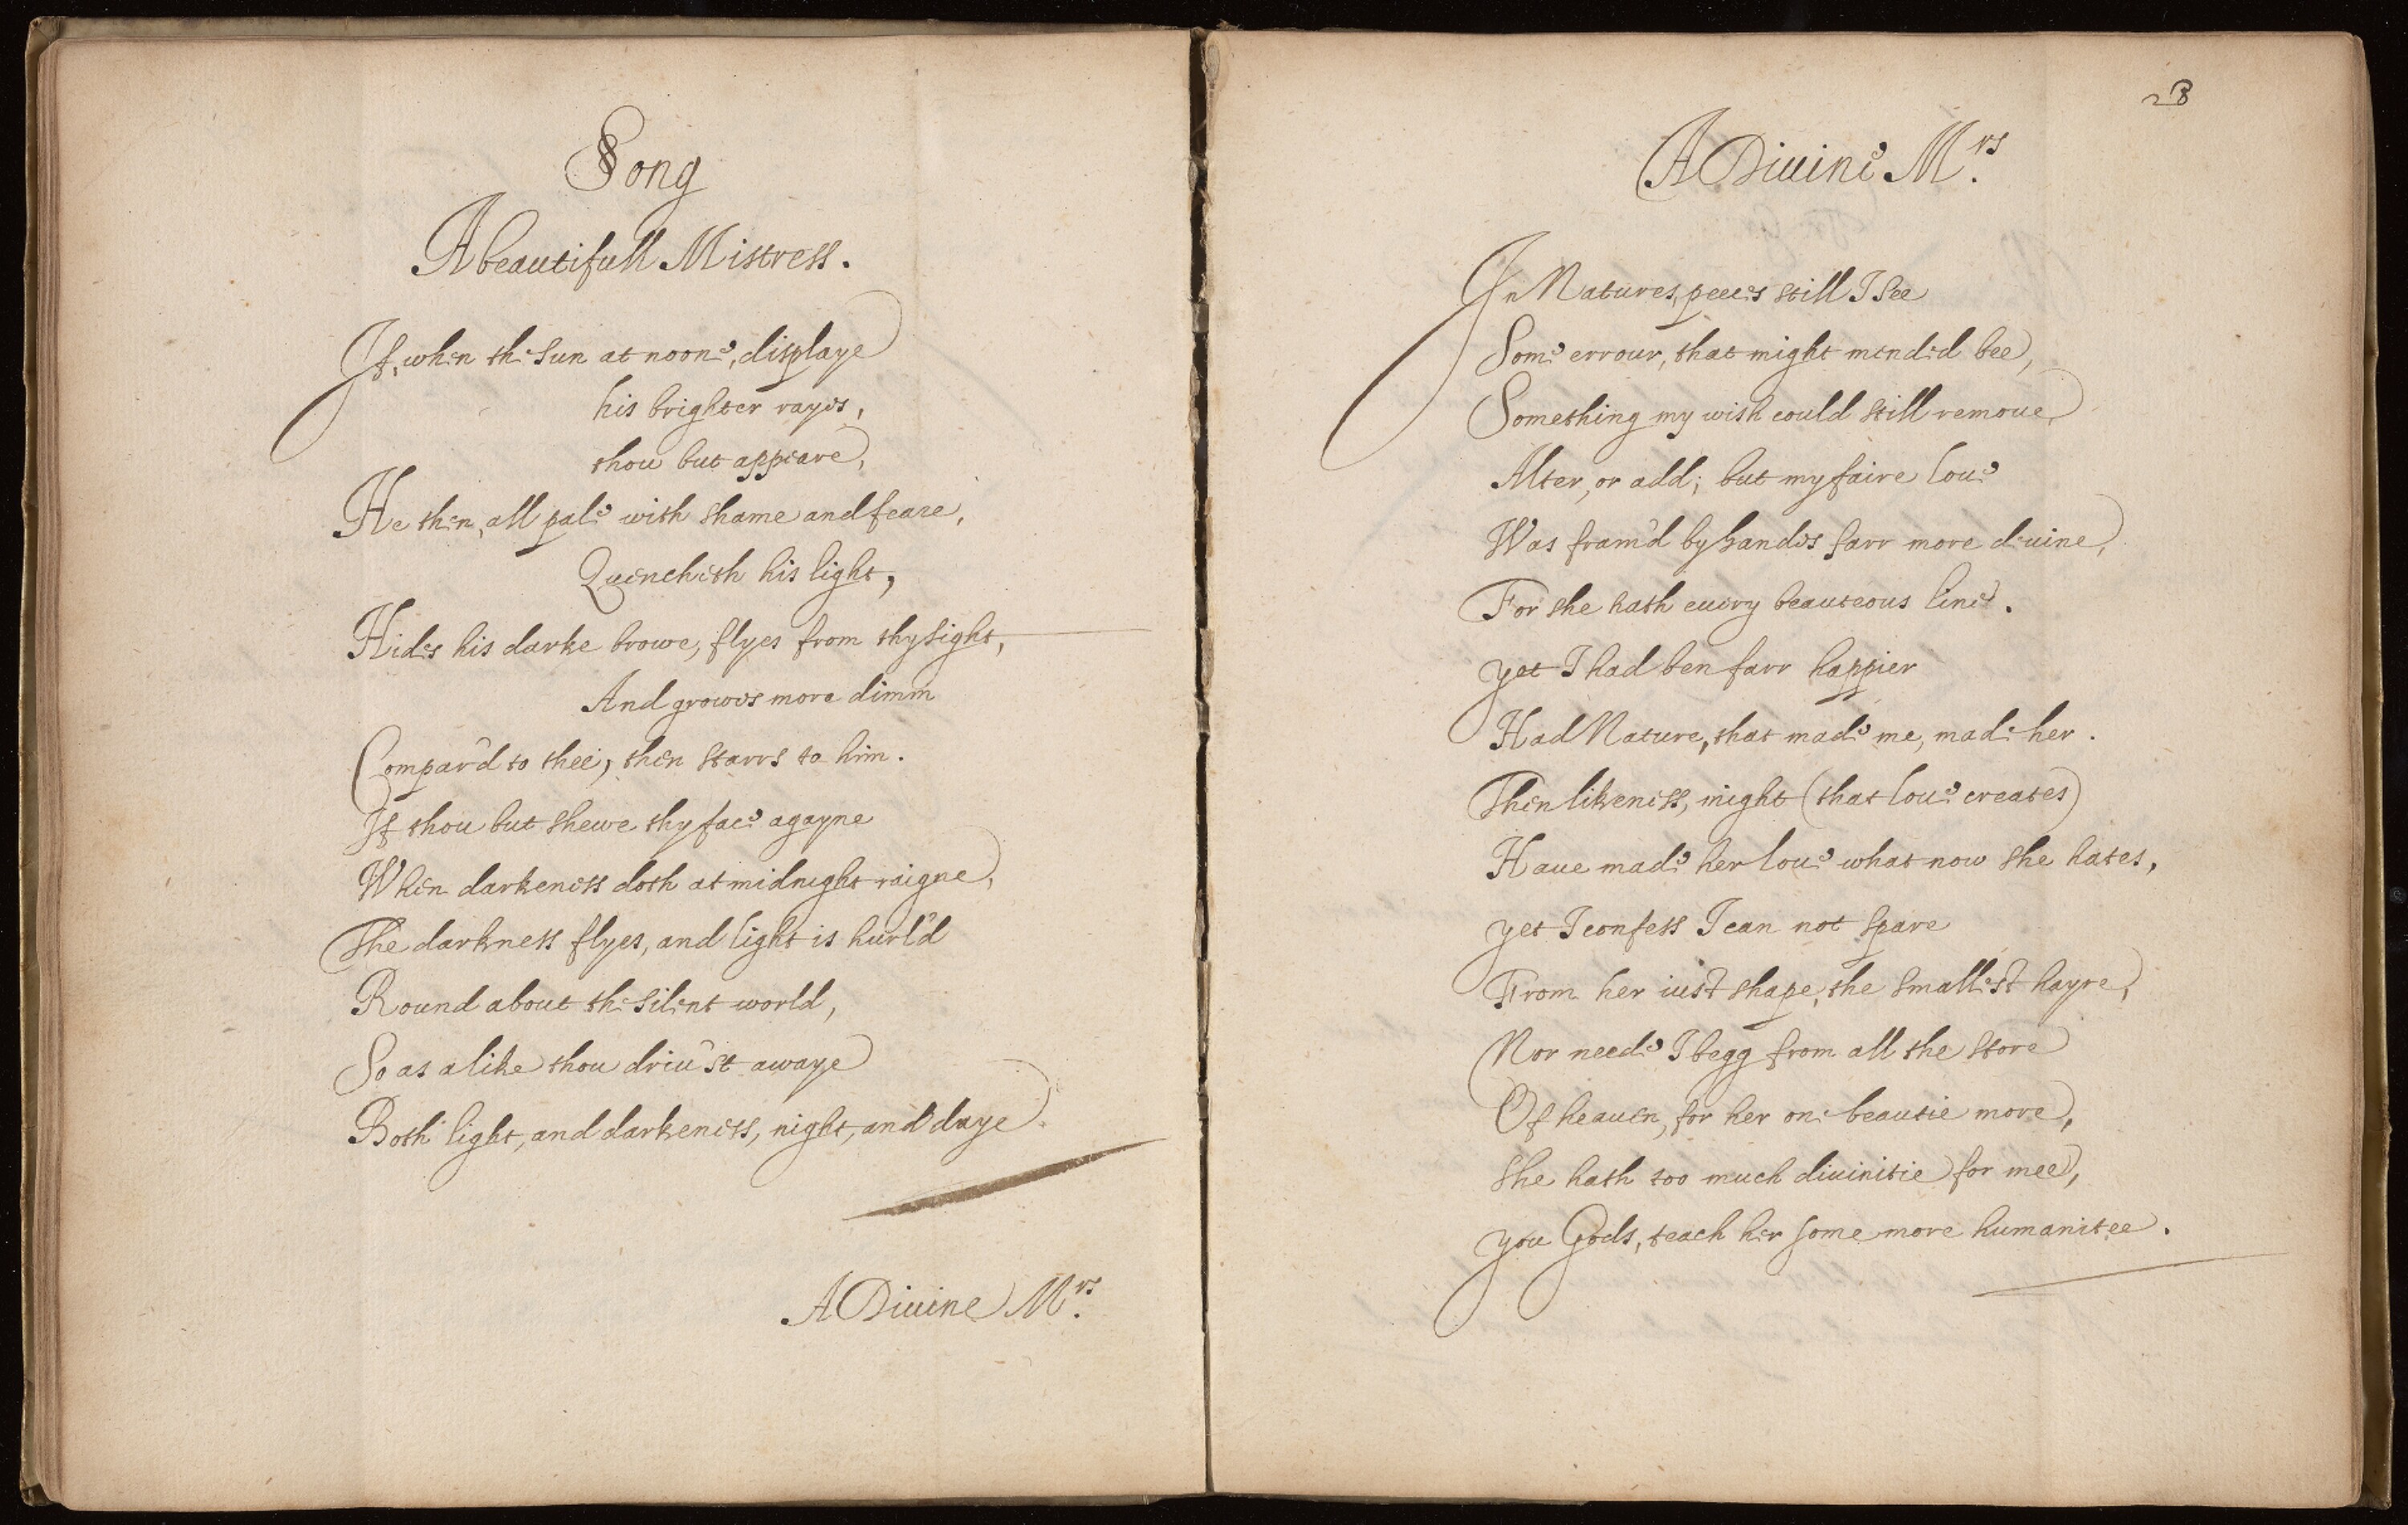 Song
A beautifull Mistress.
If, when the Sun at noone, displaye
his brighter rayes,
thou but appeare,
He then, all pale with shame and feare,
Quencheth his light,
Hides his darke browe, flyes from thy sight,
And growes more dimm
Compar'd to thee, then starrs to him.
If thou but shewe thy face agayne
When darkeness doth at midnight raigne,
The darkness flyes, and light is hurl'd
Round about the silent world,
So as alike thou driu'st awaye
Both light, and darkeness, night, and daye.
A Diuine Mrs.
28
A Diuine Mrs.
In Natures peeces still I see
Some errour, that might mended bee,
Something my wish could still remoue,
Alter, or add; but my faire loue
Was fram'd by handes farr more diuine,
For she hath euery beauteous line.
yet I had ben farr happier
Had Nature, that made me, made her.
Then likeness, might (that loue creates)
Haue made her loue what now she hates,
yet I confess I can not spare
From her iust shape, the smallest hayre,
Nor neede I begg from all the store
Of heauen, for her one beautie more,
She hath too much diuinitie for mee,
you Gods, teach her some more humanitee.